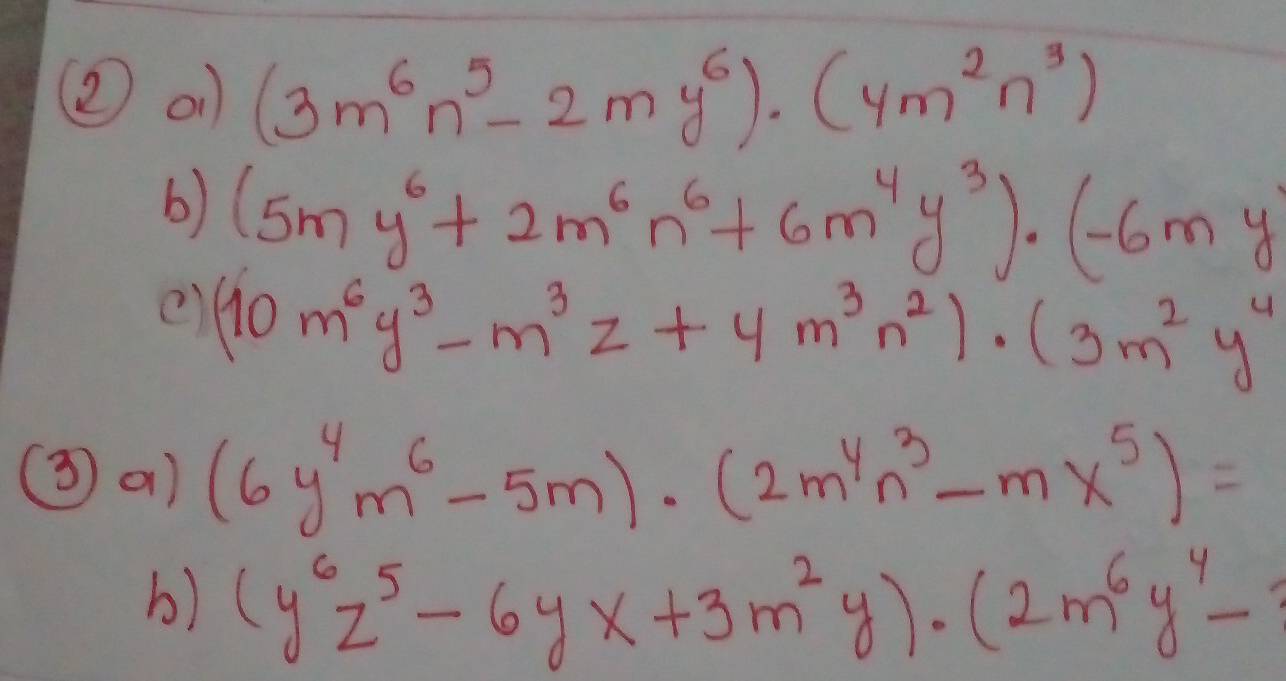 ② a) (3m⁶n⁵ - 2my⁶). (4m²n³)
b) (5my⁶ + 2m⁶n⁶ + 6m⁴y³). (-6my
c) (10m⁶y³ - m³z + 4m³n²). (3m²y⁴
③ a) (6y⁴m⁶ - 5m). (2m⁴n³ - mx⁵) =
b) (y⁶z⁵ - 6yx + 3m²y). (2m⁶y⁴ -